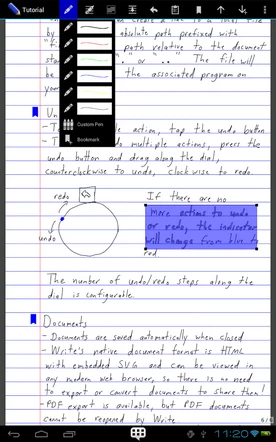 Tutorial
create a link to a local file
by absolute path prefixed with
path relative to the document
" or ".." The file will
be the associated program on
you
Custom Pen
Bookmark
Un
- T action, tap the undo button
- T do multiple actions, press the
undo button and drag along the dial,
counterclockwise to undo, clockwise to redo.
redo
undo
If there are no
more actions to undo
or redo, the indicator
will change from blue to
red
The number of undo/redo steps along the
dial is configurable.
Documents
- Documents are saved automatically when closed
- Write's native document format is HTML
with embedded SVG and can be viewed in
any modern web browser, so there is no need
to export or convert documents to share them!
- PDF export is available, but PDF documents
cannot be reopened by Write
11:20